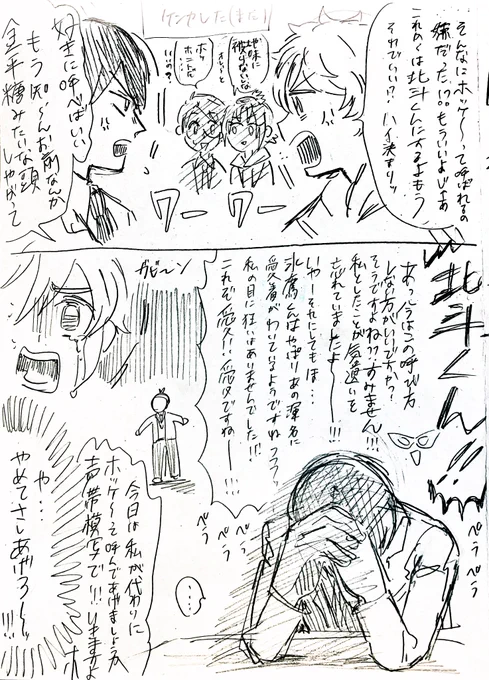 ケンカした(また)
そんなにホッケ〜って呼ばれるの
嫌だった!?もういいよじゃあ
これからは北斗くんにするよもう
それでいい!?ハイ決まりッ
地味に
ホッ
好きに呼べばいい
もう知〜んお前なんか
金平糖みたいな頭
しやがって
ワー ワー
北斗くん!!
あっ今はこの呼び方
しない方がいいですか?
そうですよね??すみません!!!
私としたことが気遣いを
忘れていましたよ〜!!
いや〜それにしてもは…
氷鷹くんはやっぱりあの渾名に
愛着がわいているようですねフフフ…
私の目に狂いはありませんでした!!!
これぞ愛!!愛ですね〜!!!
ぺら ぺら
ぺら ぺら ぺら
…
ガビーン
今日は私が代わりに
ホッケ〜って呼んであげましょうか
声帯模写で!!!いきますよ
ホ
や…
やめてさしあげろ〜ッ
!!!